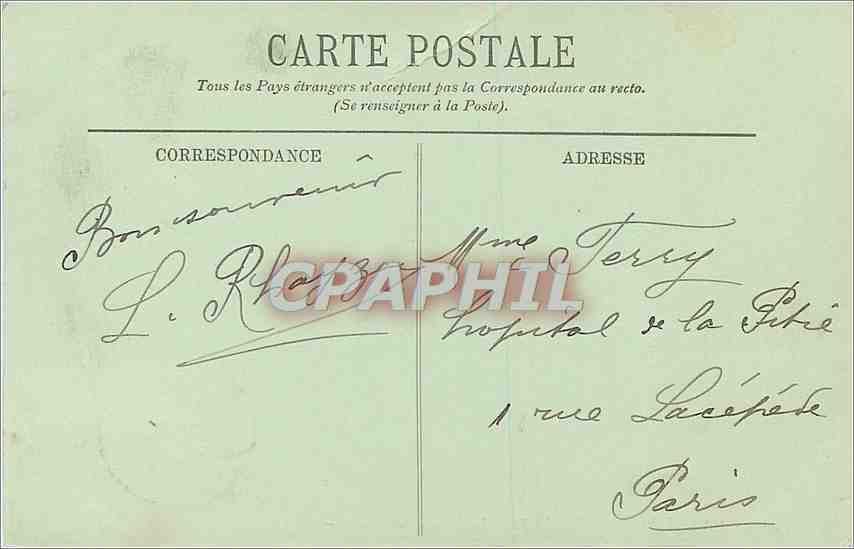 CARTE POSTALE
Tous les Pays étrangers n'acceptent pas la Correspondance au recto.
(Se renseigner à la Poste).
CORRESPONDANCE
Bon souvenir
L.
ADRESSE
Mme Terry
hopital de la Pitié
1 rue Lacépéde
Paris
CPAPHIL